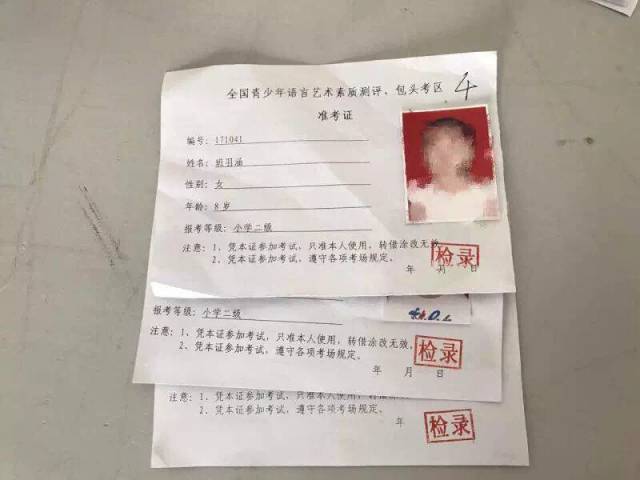 全国青少年语言艺术素质测评、包头考区
4
准考证
编号：171041
姓名：班羽涵
性别：女
年龄：8岁
报考等级：小学二级
注意：1、凭本证参加考试，只准本人使用，转借涂改无效
2、凭本证参加考试，遵守各项考场规定。
检录
年 月 日
报考等级：小学二级
注意：1、凭本证参加考试，只准本人使用，转借涂改无效。
2、凭本证参加考试，遵守各项考场规定。
检录
年 月 日
注意：1、凭本证参加考试，只准本人使用，
2、凭本证参加考试，遵守各项考场规定。
年
检录